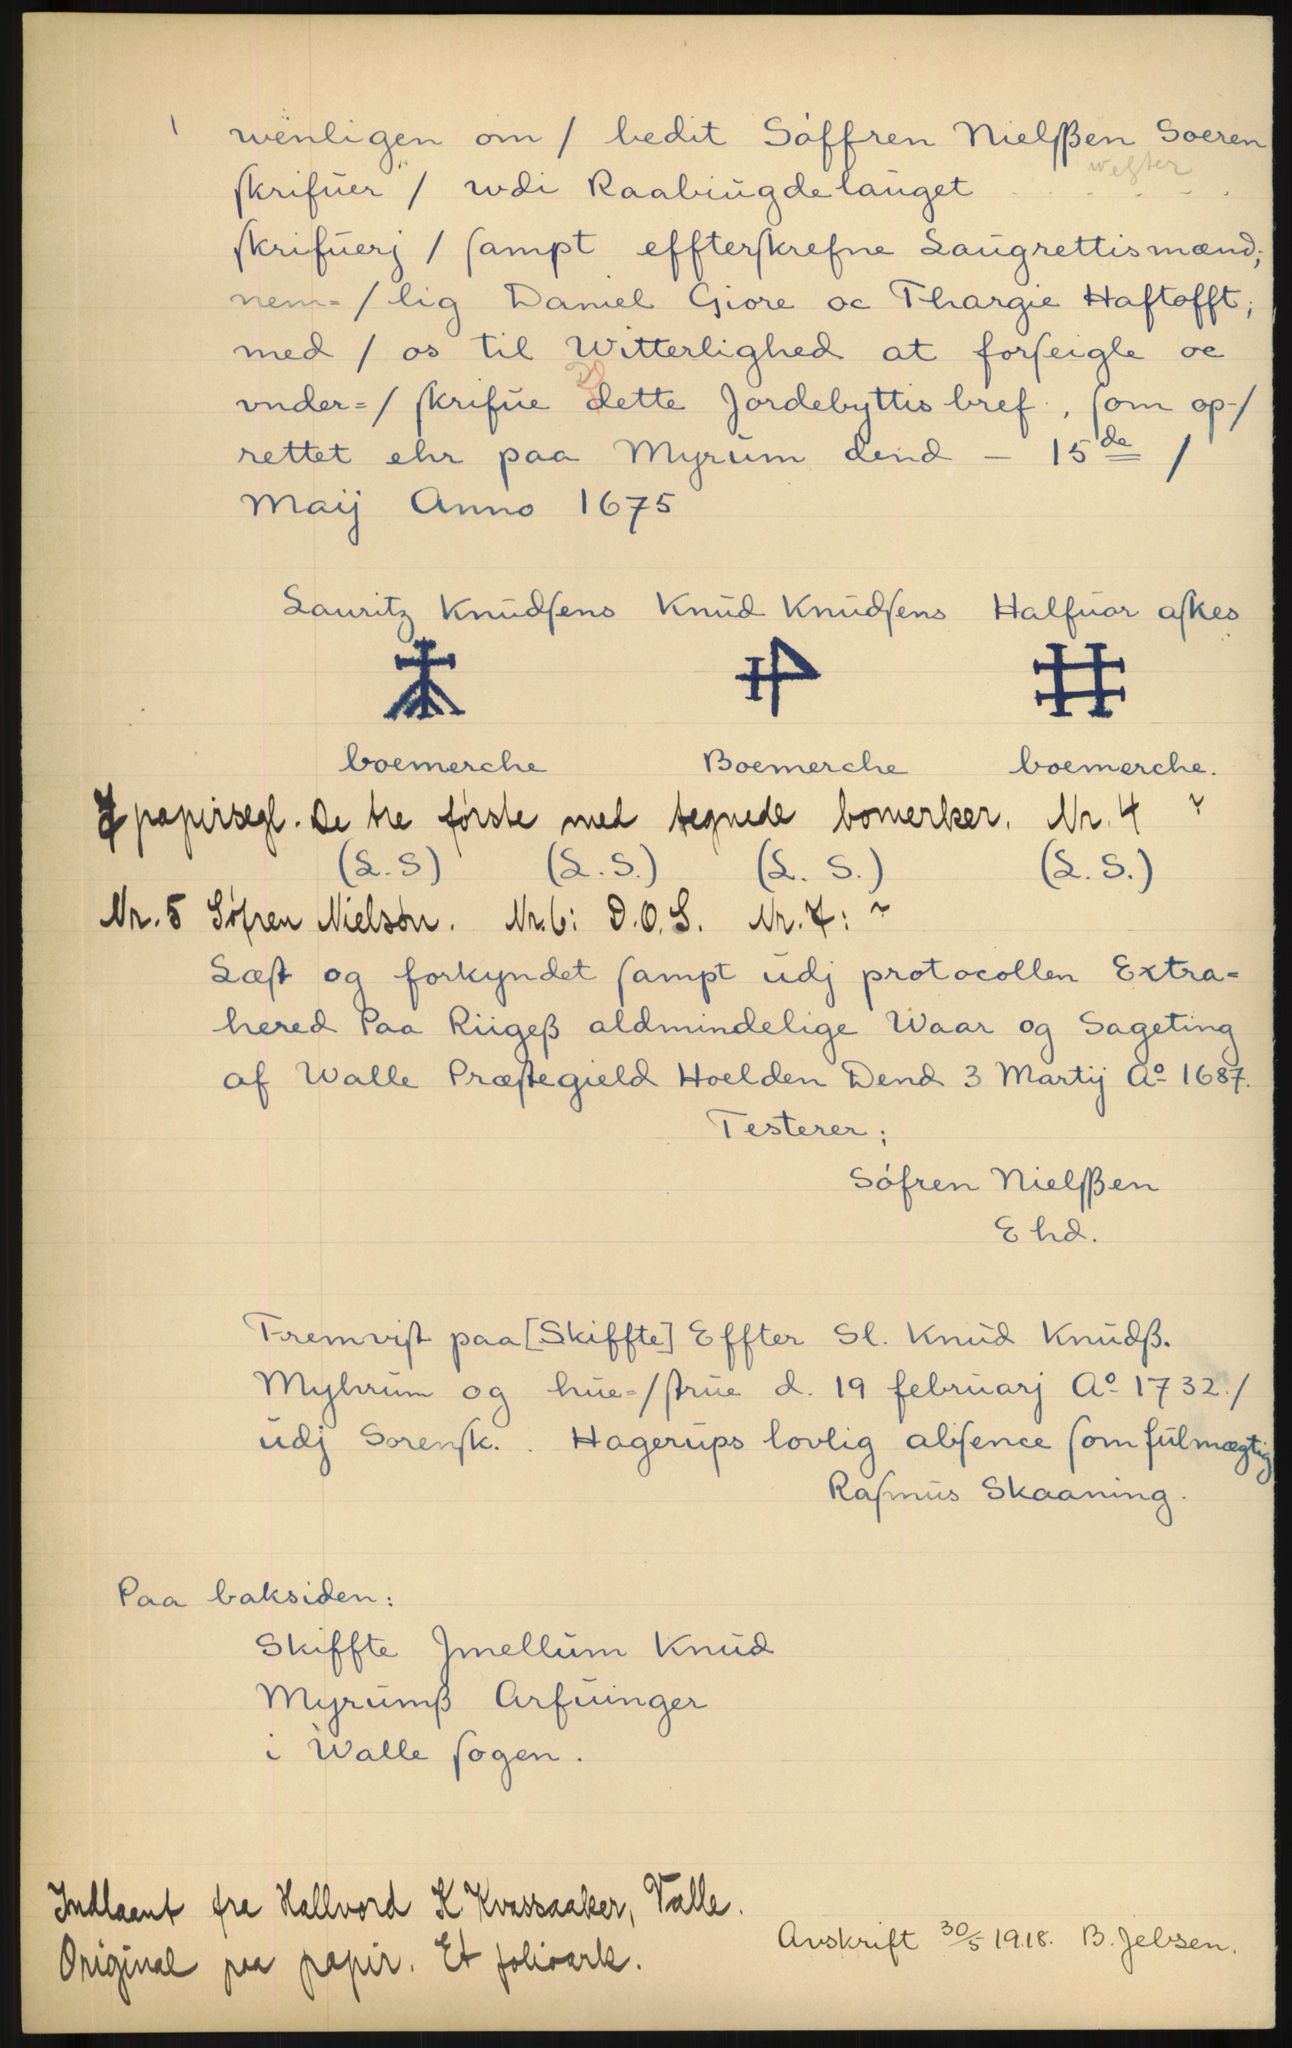 wenligen om / bedit Söffren Nielſßen Soeren
ſkrifuer / udi Raabiugdelauget
ſkrifuerj / ſampt effterſkrefne Laugrettismænd;
nem= / lig Daniel Giore oc Thargie Haftofft;
med / os til Witterlighed at forſeigle oc
vnder= / ſkrifue dette Jordebyttis bref, ſom op-/
rettet ehr paa Myrum dend – 15de /
Maij Anno 1675
Lauritz Knudſens Knud Knudſens Halfuor aſkes
boemerche Boemerche boemerche.
7 papirsegl. De tre første med tegnede bomerker. Nr. 4 ?
(L.S) (L.S.) (L.S.) (L.S.)
Nr. 5 Søfren Nielsøn. Nr. 6: D.O.S. Nr. 7: ?
Læſt og forkyndet ſampt udj protocollen Extra=
hered Paa Riigeß aldmindelige Waar og Sageting
af Walle Præſtegield Hoelden Dend 3 Martij Ao 1687.
Testerer;
Söfren Nielſßen
Ehd.
Fremviſt paa [Skiffte] Effter Sl. Knud Knudß.
Myhrum og hue=/ſtrue d. 19 februarj Ao 1732./
udj Sorenſk. . Hagerups lovlig abſence ſom fulmægtig
Raſmus Skaaning.
Paa baksiden:
Skiffte Jmellum Knud
Myrumß Arfuinger
i Walle ſogen.
Indlaant fra Hallvord K Kvassaaker, Valle.
Original paa papir. Et folioark.
Avskrift 30/5 1918. B. Jebsen.